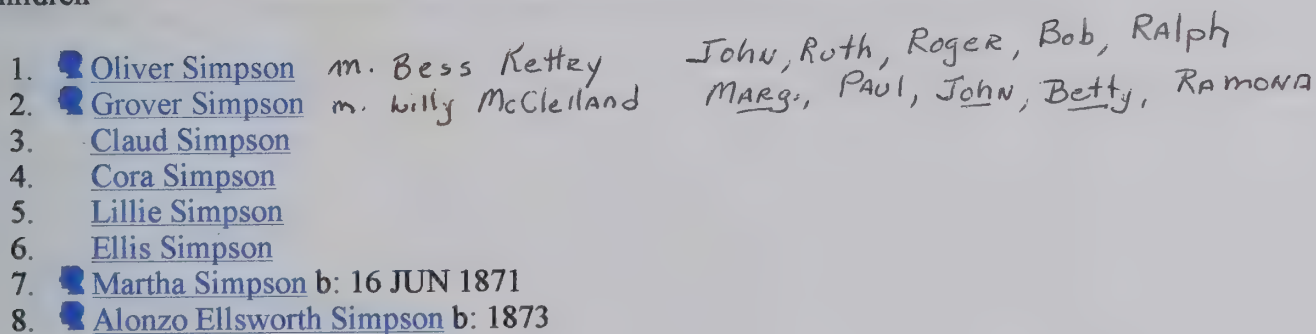 1. Oliver Simpson m. Bess Kettzy John, Ruth, Roger, Bob, Ralph
2. Grover Simpson m. Willy McClelland Marg., Paul, John, Betty, Ramona
3. Claud Simpson
4. Cora Simpson
5. Lillie Simpson
6. Ellis Simpson
7. Martha Simpson b: 16 JUN 1871
8. Alonzo Ellsworth Simpson b: 1873